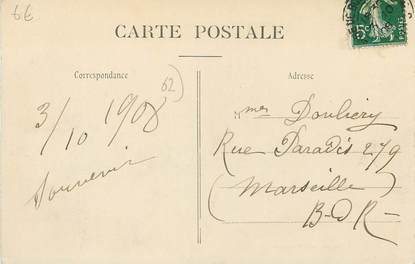 6€
CARTE POSTALE
Correspondance
Adresse
62
3/10 1908
Souvenir
Mmes Doubiery
Rue Paradis 279
(Marseille)
B-D R-
5c